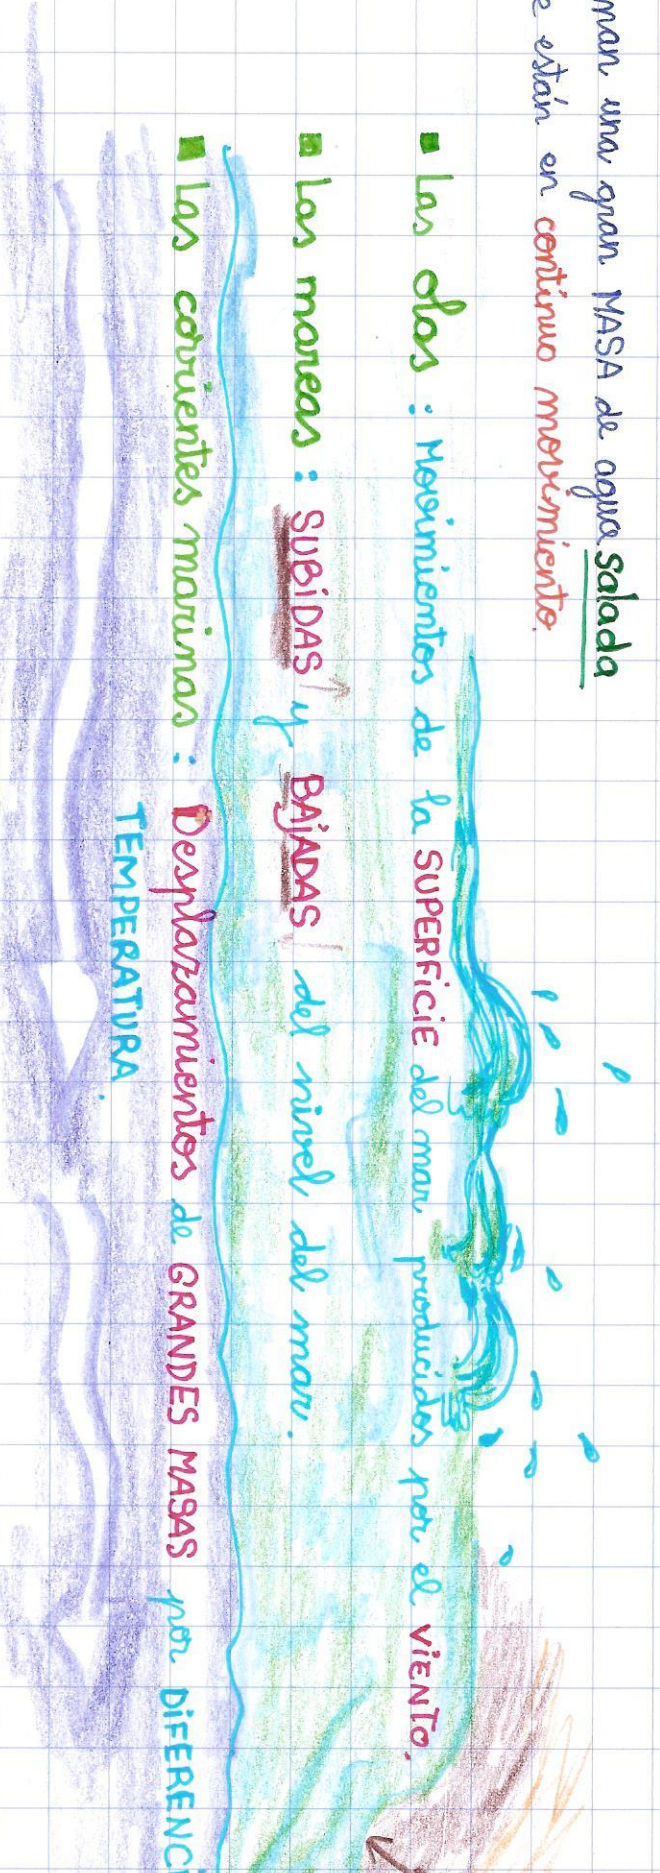 man una gran MASA de agua salada
e están en continuo movimiento.
Las olas : Movimientos de la SUPERFiCiE del mar producidos por el ViENTO.
Las mareas : SUBiDAS y BAjADAS del nivel del mar.
Las corrientes marinas : Desplazamientos de GRANDES MASAS por DiFERENCi
TEMPERATURA.